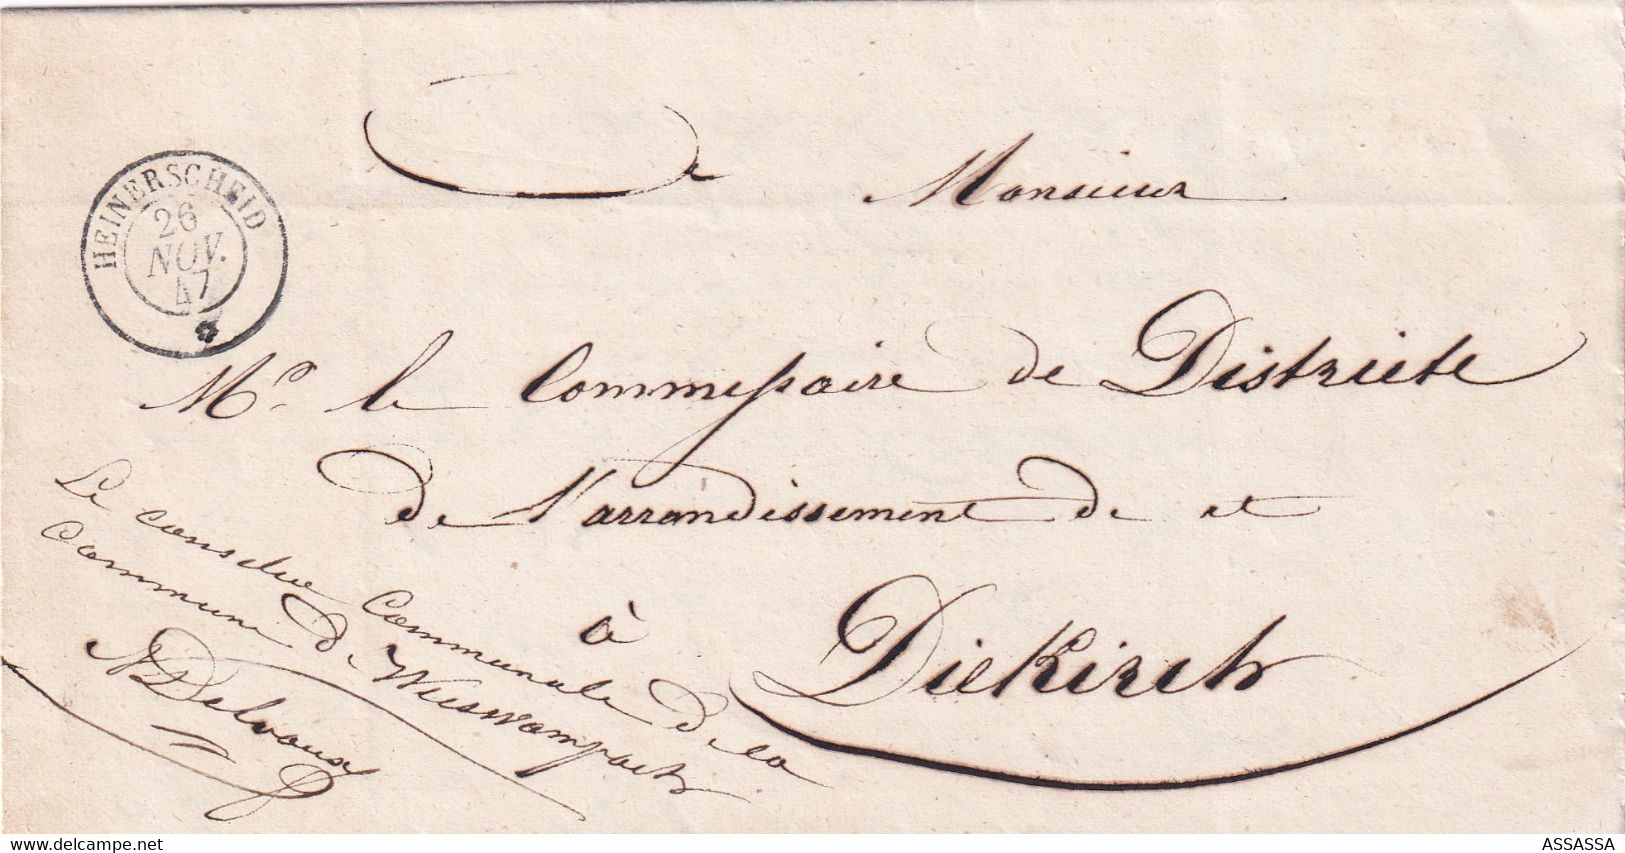 HEINERSCHEID
26
NOV.
47
A Monsieur
Mr. le Commissaire de Districte
de l'arrondissement de et
à Diekirch
Le Communale de la
Commune de Weiswampach
N Delvaux
www.delcampe.net
ASSASSA